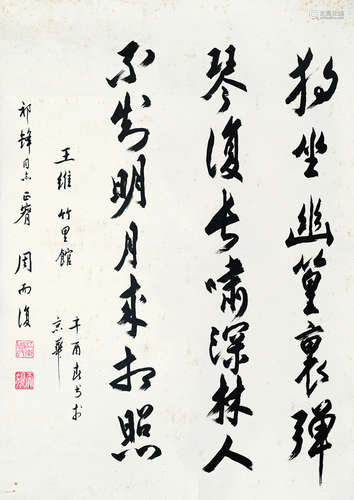 独坐幽篁裏彈
琴復长嘯深林人
不知明月来相照
王维 竹里館
辛酉春书於
京華
祁锋同志正腕
周而復